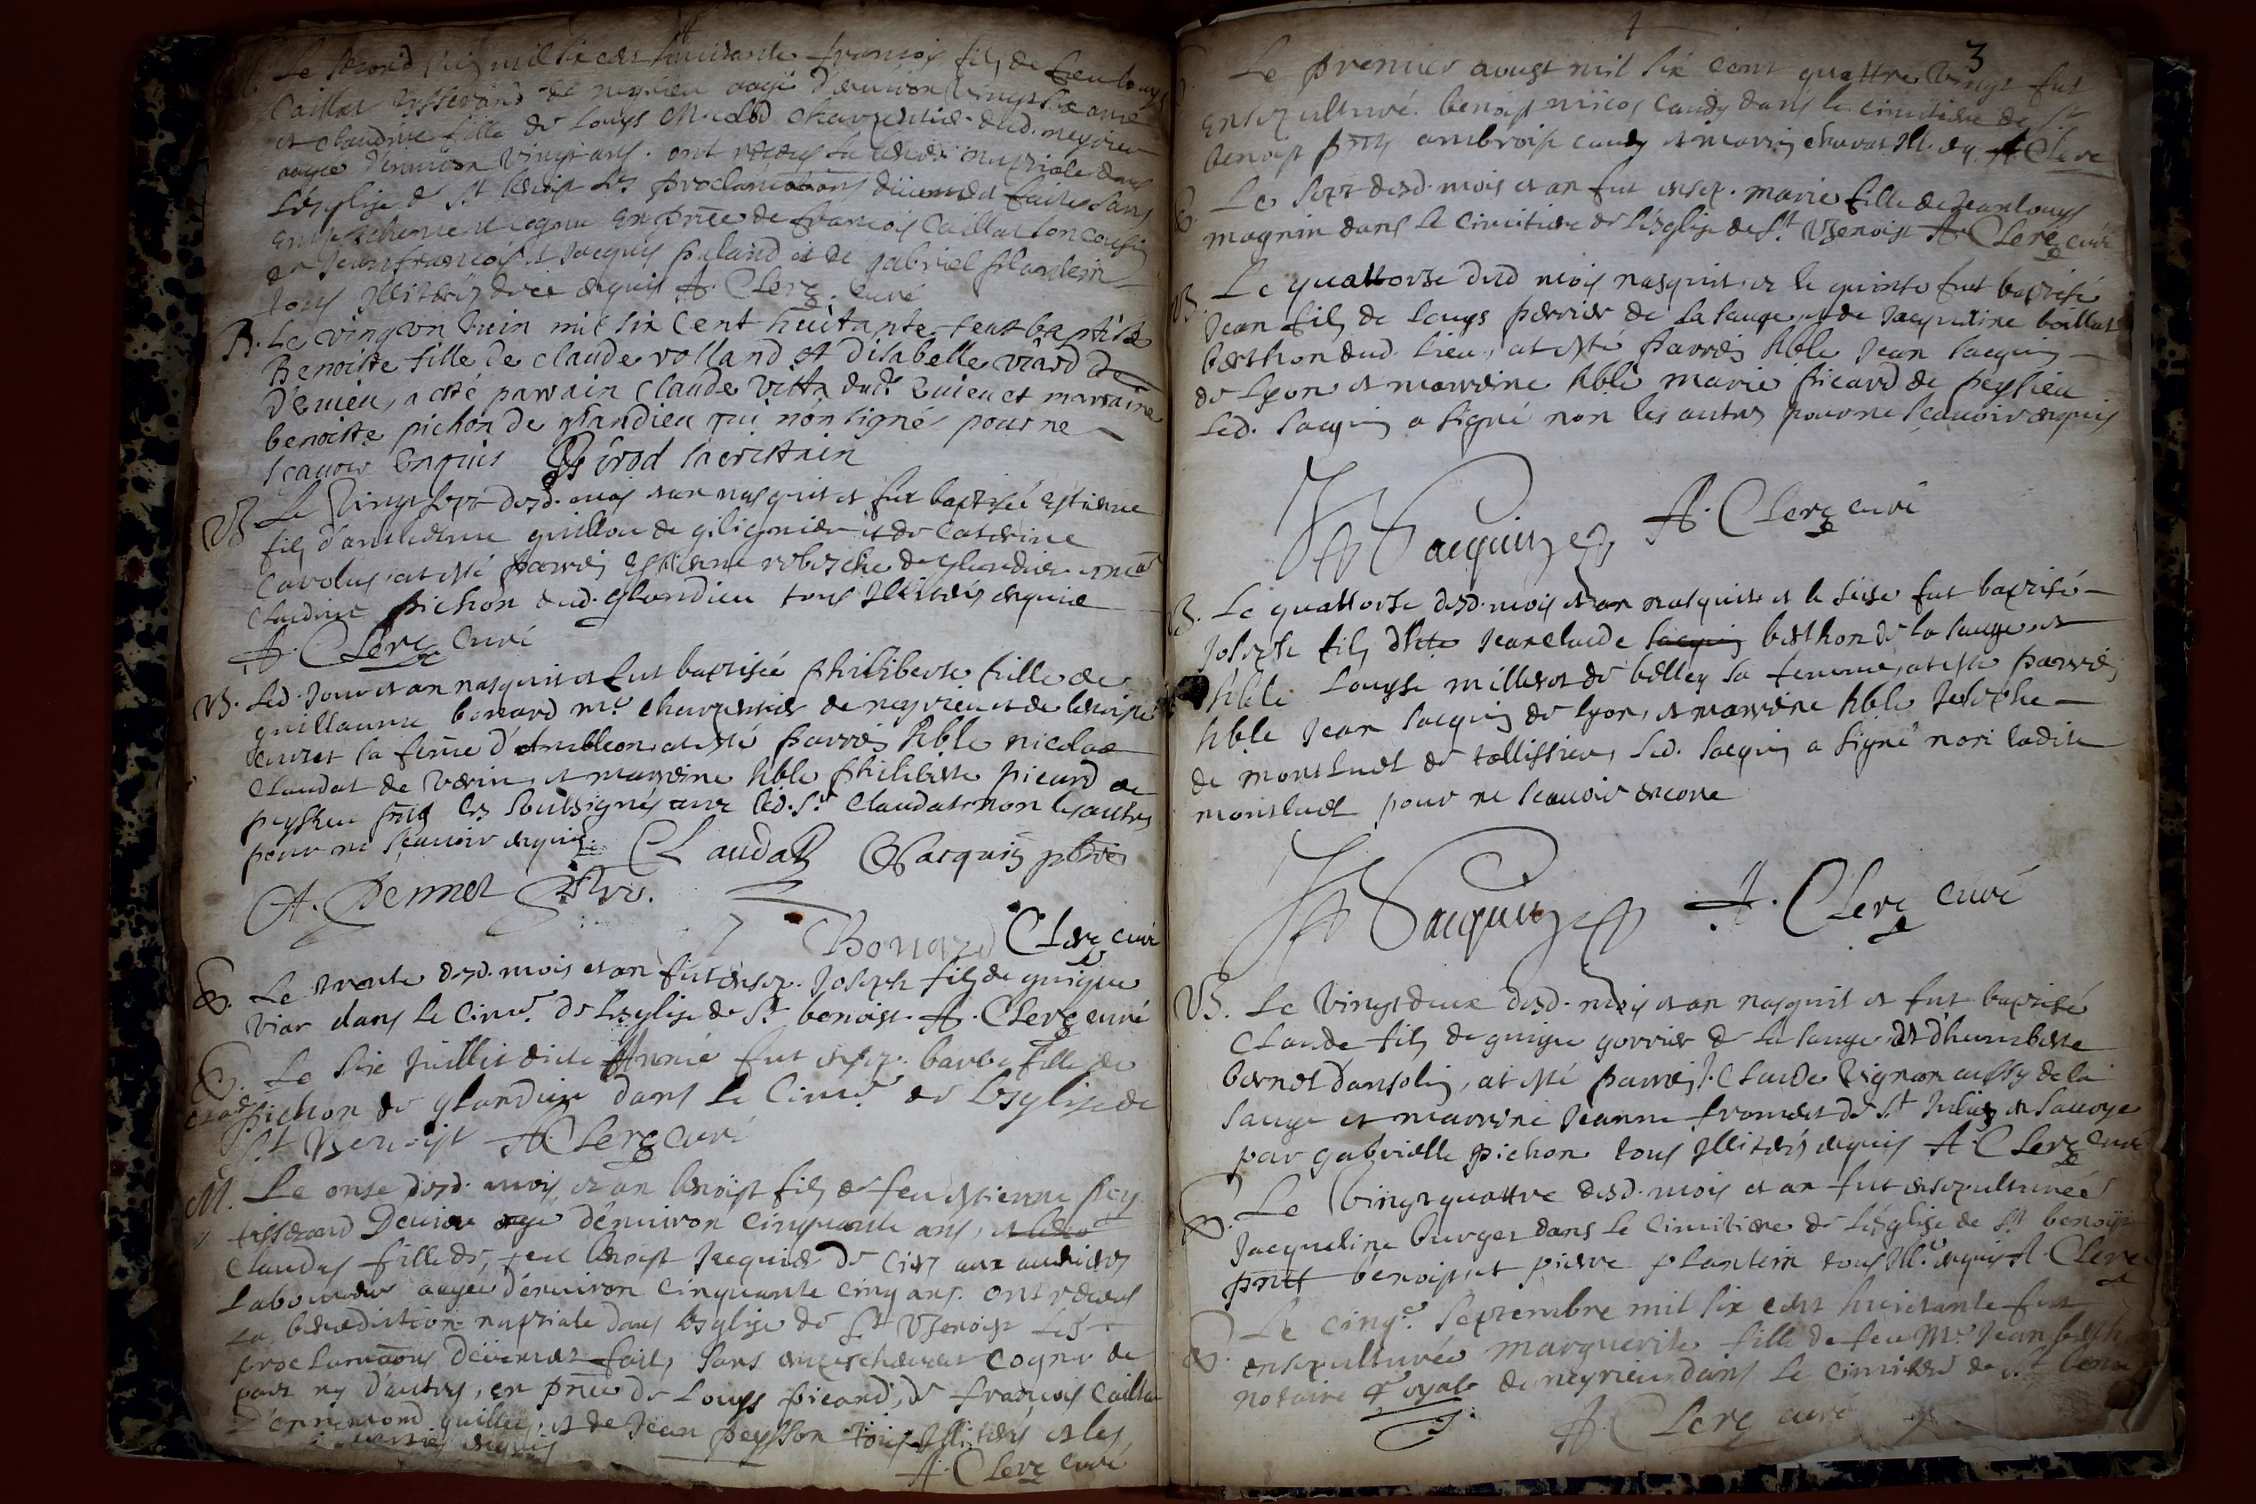 Le second Juin mil six cent huictante françois fils de feu louys
Caillat tisserand de neyrieu aagé d'enuiron vingt six ans
et claudine fille de Louys charpentier dud. neyrieu
aagee d'enuiron vingt ans. ont receus la nuptiale dans
L'esglise de St benoist les proclamaõns düement faites sans
empeschement cognu En prñce de françois Caillat son cousin
et Jean françois et Jacques paland et de gabriel plantein
tous Illiterés enquis A. Clerc curé
B. Le vingt un Juin mil six Cent huitante feut baptisé
Benoitte fille de claude volland et d'isabelle viard de
d'euieu, a esté parrain Claude Vitta dudt euieu et marraine
benoitte pichon de glandieu qui non signés pour ne
scauoir Enquis Pérod sacristain
B. Le Vingt sept desd. mois et an nasquit et fut baptisé estienne
fils d'anthelme guillon de giligneu et de Caterine
Carolus, at esté parrẽ estienne robesche de glandieu et
claudine pichon dud. glandieu tous Illiterés enquis
A. Clerc Curé
B. Led. Jour et an nasquit et fut baptisée philiberte fille de
guillaume bonard mre charpentier de neyrieu et de benoiste
sa feme d'Ambleon, at esté parrẽ hble nicolas
Claudat de Verin, et marreine hble philiberte picard de
peysieu prñs les soubsignés auec led. Sr Claudat non les autres
pour ne scauoir enquis. Claudat Jacquin pbre
A. Dennet
Bonard Clerc curé
E. Le trente desd. mois et an fut ensep. Joseph fils de guigue
viar dans le Cime. de L'esglise de St benoist. A. Clerc curé
E. Le six Juillet dicte Année fut ensep. barbe fille de
pichon de glandieu dans le Cime. de L'esglise de
St Benoist A. Clerc curé
M. Le onse desd. mois et an benoist fils de feu estienne pey
tisserand Deuieu age d'enuiron cinquante ans, et
Claudas fille de, feu benoist Jacquier de
Laboureur aagée d'enuiron cinquante cinq ans. ont receus
La benediction nuptiale dans L'esglise de St Benoist Les
proclamaõns düement faites sans empeschement cognu de
part ny d'autres, en prñce de Louys picard, de françois Caillat
d'ennemond guillet, et de Jean peysson tous Illiterés et les
enquis
A. Clerc curé
3
Le premier aoust mil six cent quattre vingt fut
ensepulturé. benoist candy dans le cimitiere de St
benoist prñs ambroise candy et marin chavat Ill. enq. A Clerc
E. Le sept desd. mois et an fut ensep. marie fille de Jean louys
magnin dans le cimitiere de L'esglise de St Benoist A. Clerc curé
B. Le quattorse dud mois nasquit, et le quinse fut baptisé
Jean fils de Louys perrier de la sauge, et de Jacqueline
berthon dud. lieu, at esté parrẽ hble Jean Jacquin
de Lyon et marreine hble marie picard de peysieu
Led. Jacquin a signé non les autres pour ne scauoir enquis
Jacquin A. Clerc curé
B. Le quattorse desd. mois et an nasquit et le seise fut baptisé
Joseph fils d'hble Jean claude Jacquin berthon de la sauge, et
hble Louyse millieret de belley sa femme, at esté parrẽ
hble Jean Jacquin de Lyon, et marreine hble Josephe
de montluet de tallissieu, Led. Jacquin a signé non ladite
montluet pour ne scauoir encore
Jacquin A. Clerc curé
B. Le Vingt deux desd. mois et an nasquit et fut baptisé
Claude fils de guigue gorrier de la sauge et d'humberte
bernet d'ansolin, at esté parrẽ Claude Vignon aussy de la
sauge et marreine Jeanne fromet de St Julin en Sauoye
par gabrielle pichon tous Illiterés enquis A. Clerc curé
E. Le Vingt quattre desd. mois et an fut ensepulturée
Jacqueline burger dans le Cimitiere de L'esglise de St benoist
prñt benoist et pierre plantein tous Ill. enquis A. Clerc
E. Le cinqe. septembre mil six cent huictante fut
ensepulturée marguerite fille de feu Me Jean
notaire Royale de neyrieu dans le Cimitiere de St beno
A. Clerc curé